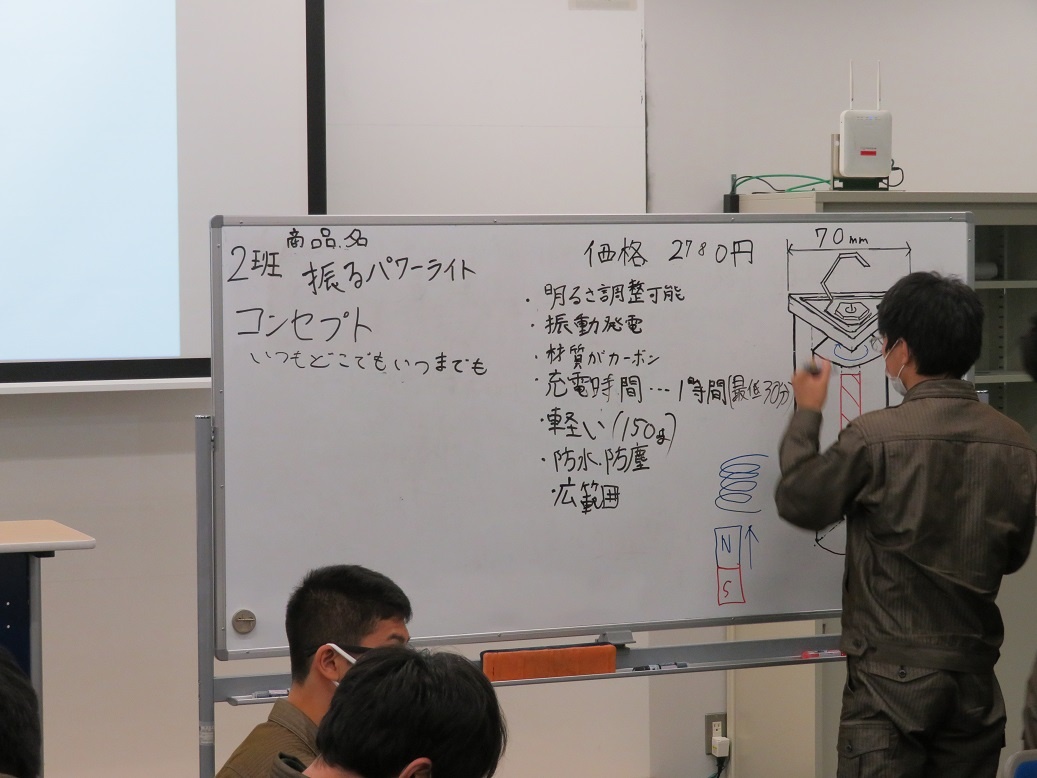 2班
商品名
振るパワーライト
コンセプト
いつもどこでもいつまでも
価格 2780円
・明るさ調整可能
・振動発電
・材質がカーボン
・充電時間…1時間(最低30分)
・軽い(150g)
・防水・防塵
・広範囲
70mm
N
S